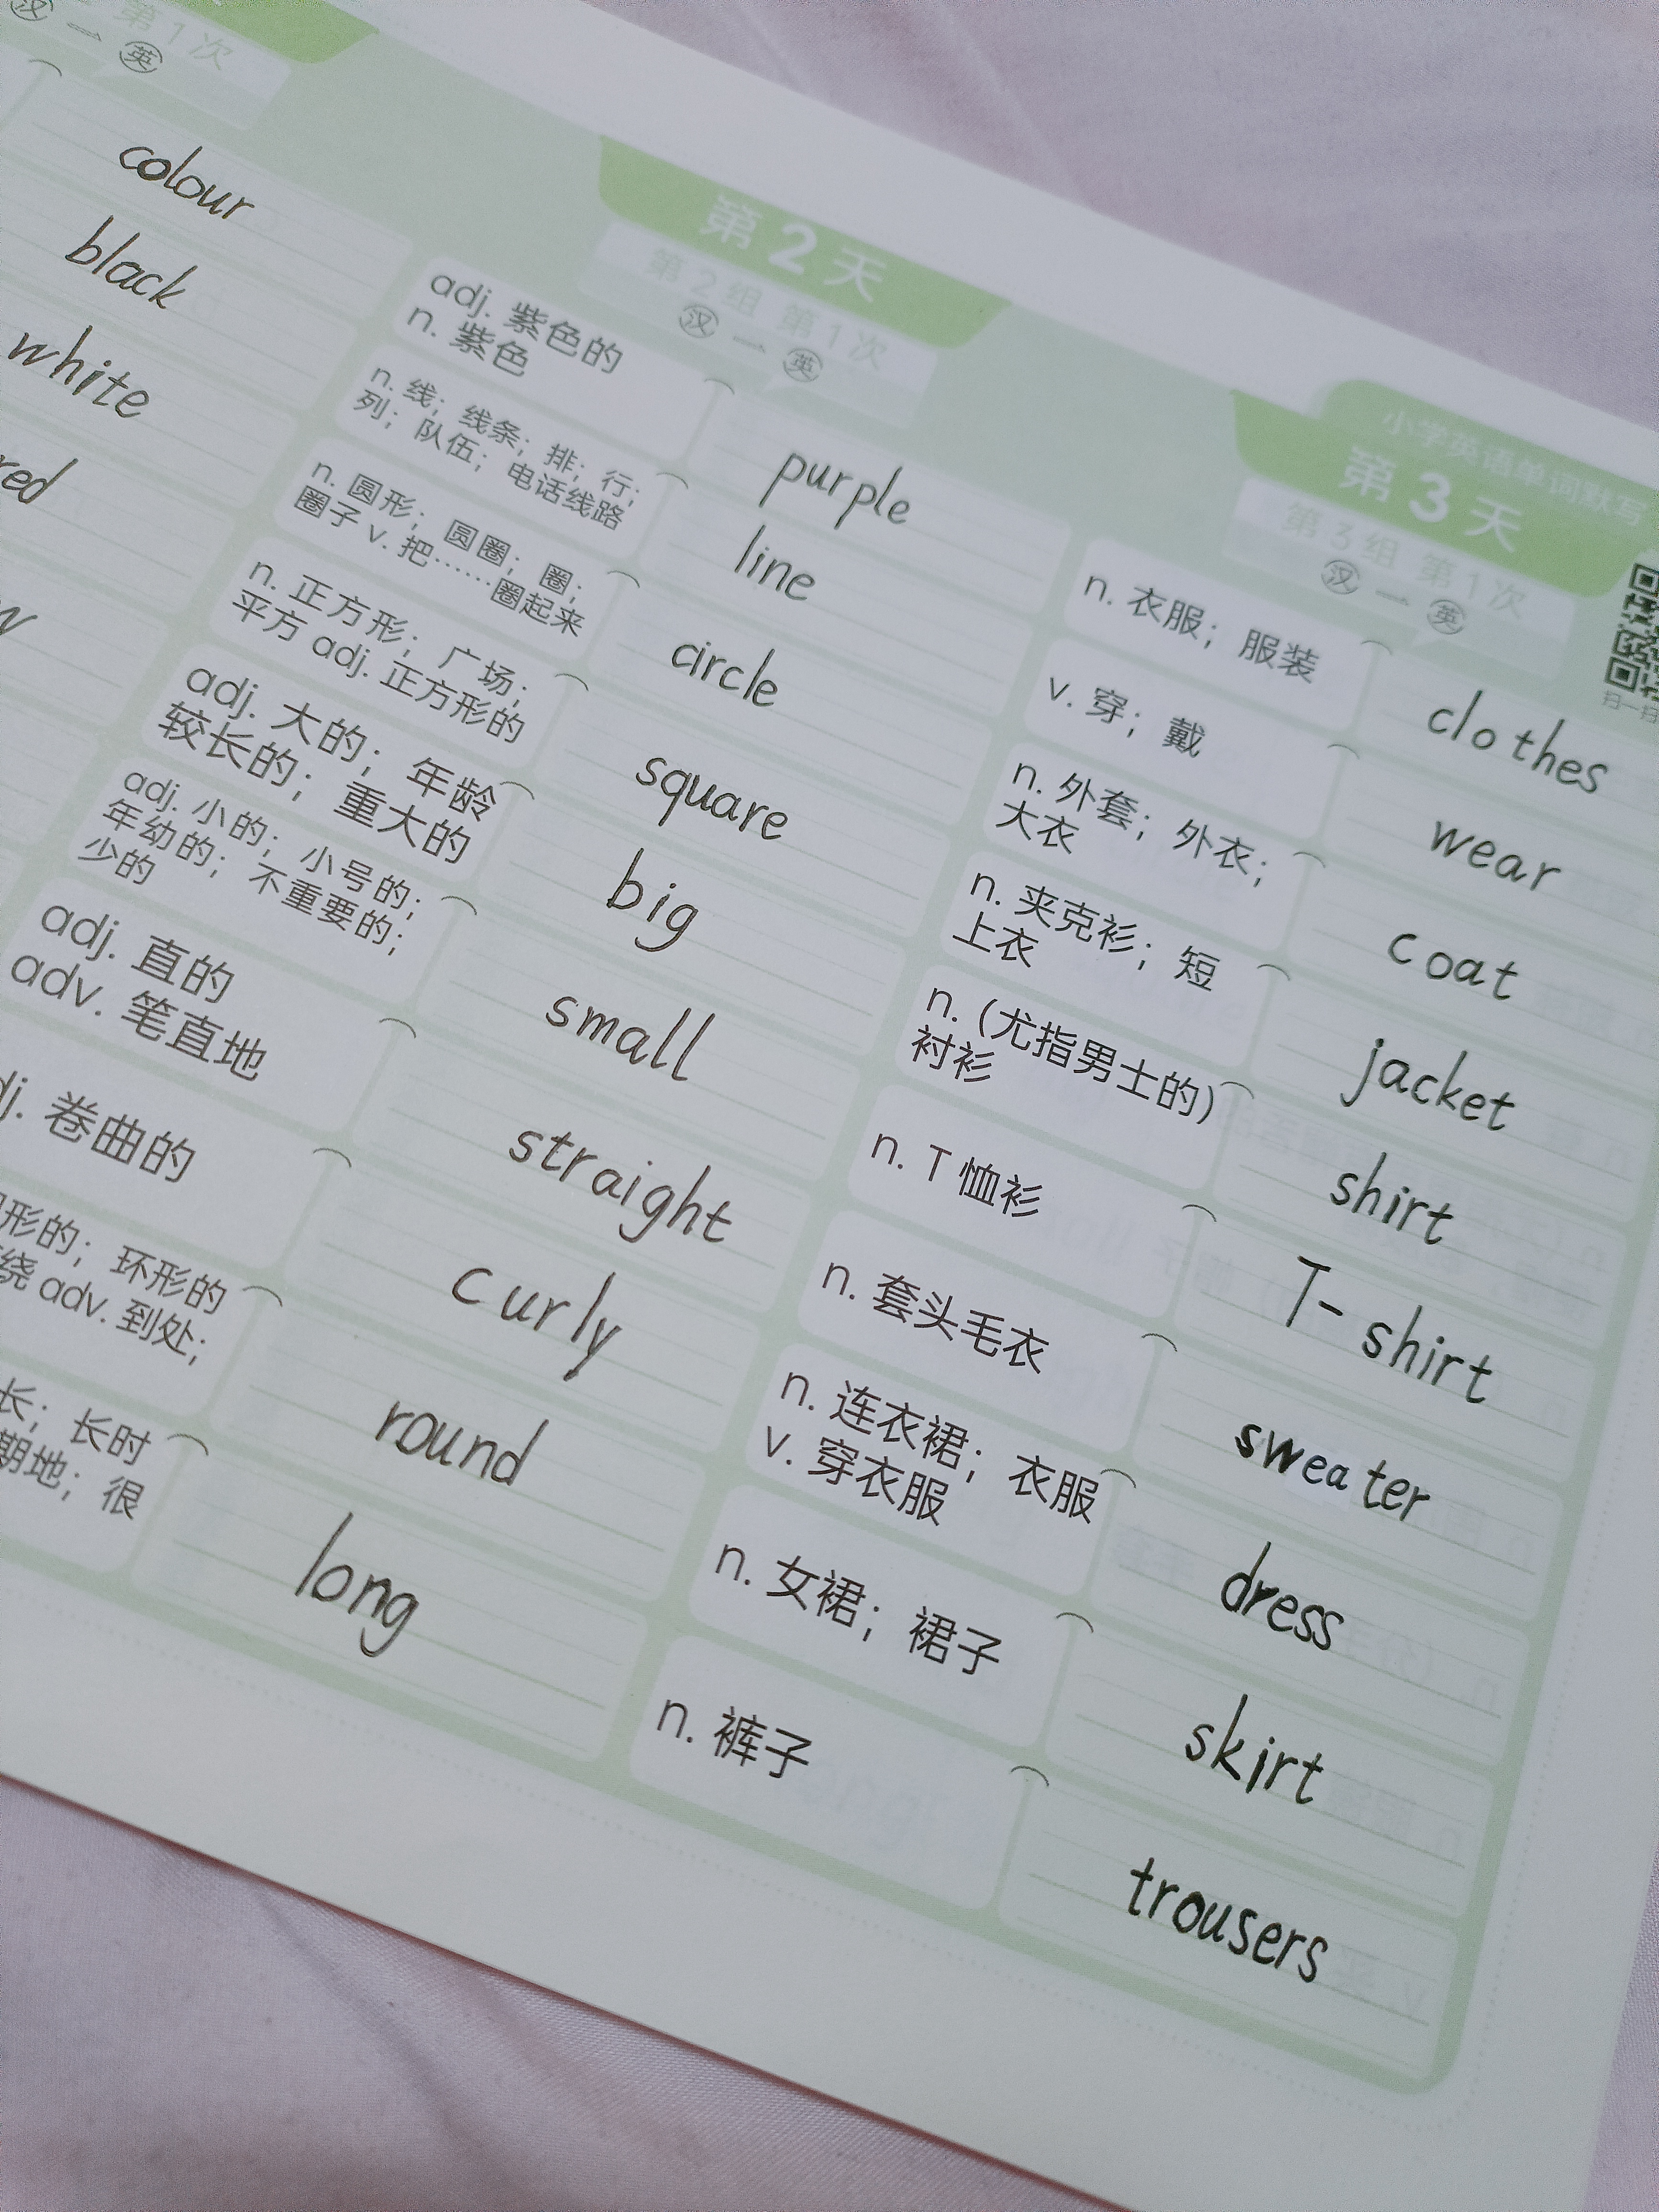 第1次
汉 — 英
colour
black
white
red
第2天
第2组 第1次
汉 — 英
adj. 紫色的
n. 紫色
purple
n. 线；线条；排；行；
列；队伍；电话线路
line
n. 圆形；圆圈；圈；
圈子 v. 把……圈起来
circle
n. 正方形；广场；
平方 adj. 正方形的
square
adj. 大的；年龄
较长的；重大的
big
adj. 小的；小号的；
年幼的；不重要的；
少的
small
adj. 直的
adv. 笔直地
straight
卷曲的
curly
形的；环形的
绕 adv. 到处；
round
长；长时
期地；很
long
小学英语单词默写
第3天
第3组 第1次
汉 — 英
扫一扫
n. 衣服；服装
clothes
v. 穿；戴
wear
n. 外套；外衣；
大衣
coat
n. 夹克衫；短
上衣
jacket
n. (尤指男士的)
衬衫
shirt
n. T 恤衫
T-shirt
n. 套头毛衣
sweater
n. 连衣裙；衣服
v. 穿衣服
dress
n. 女裙；裙子
skirt
n. 裤子
trousers